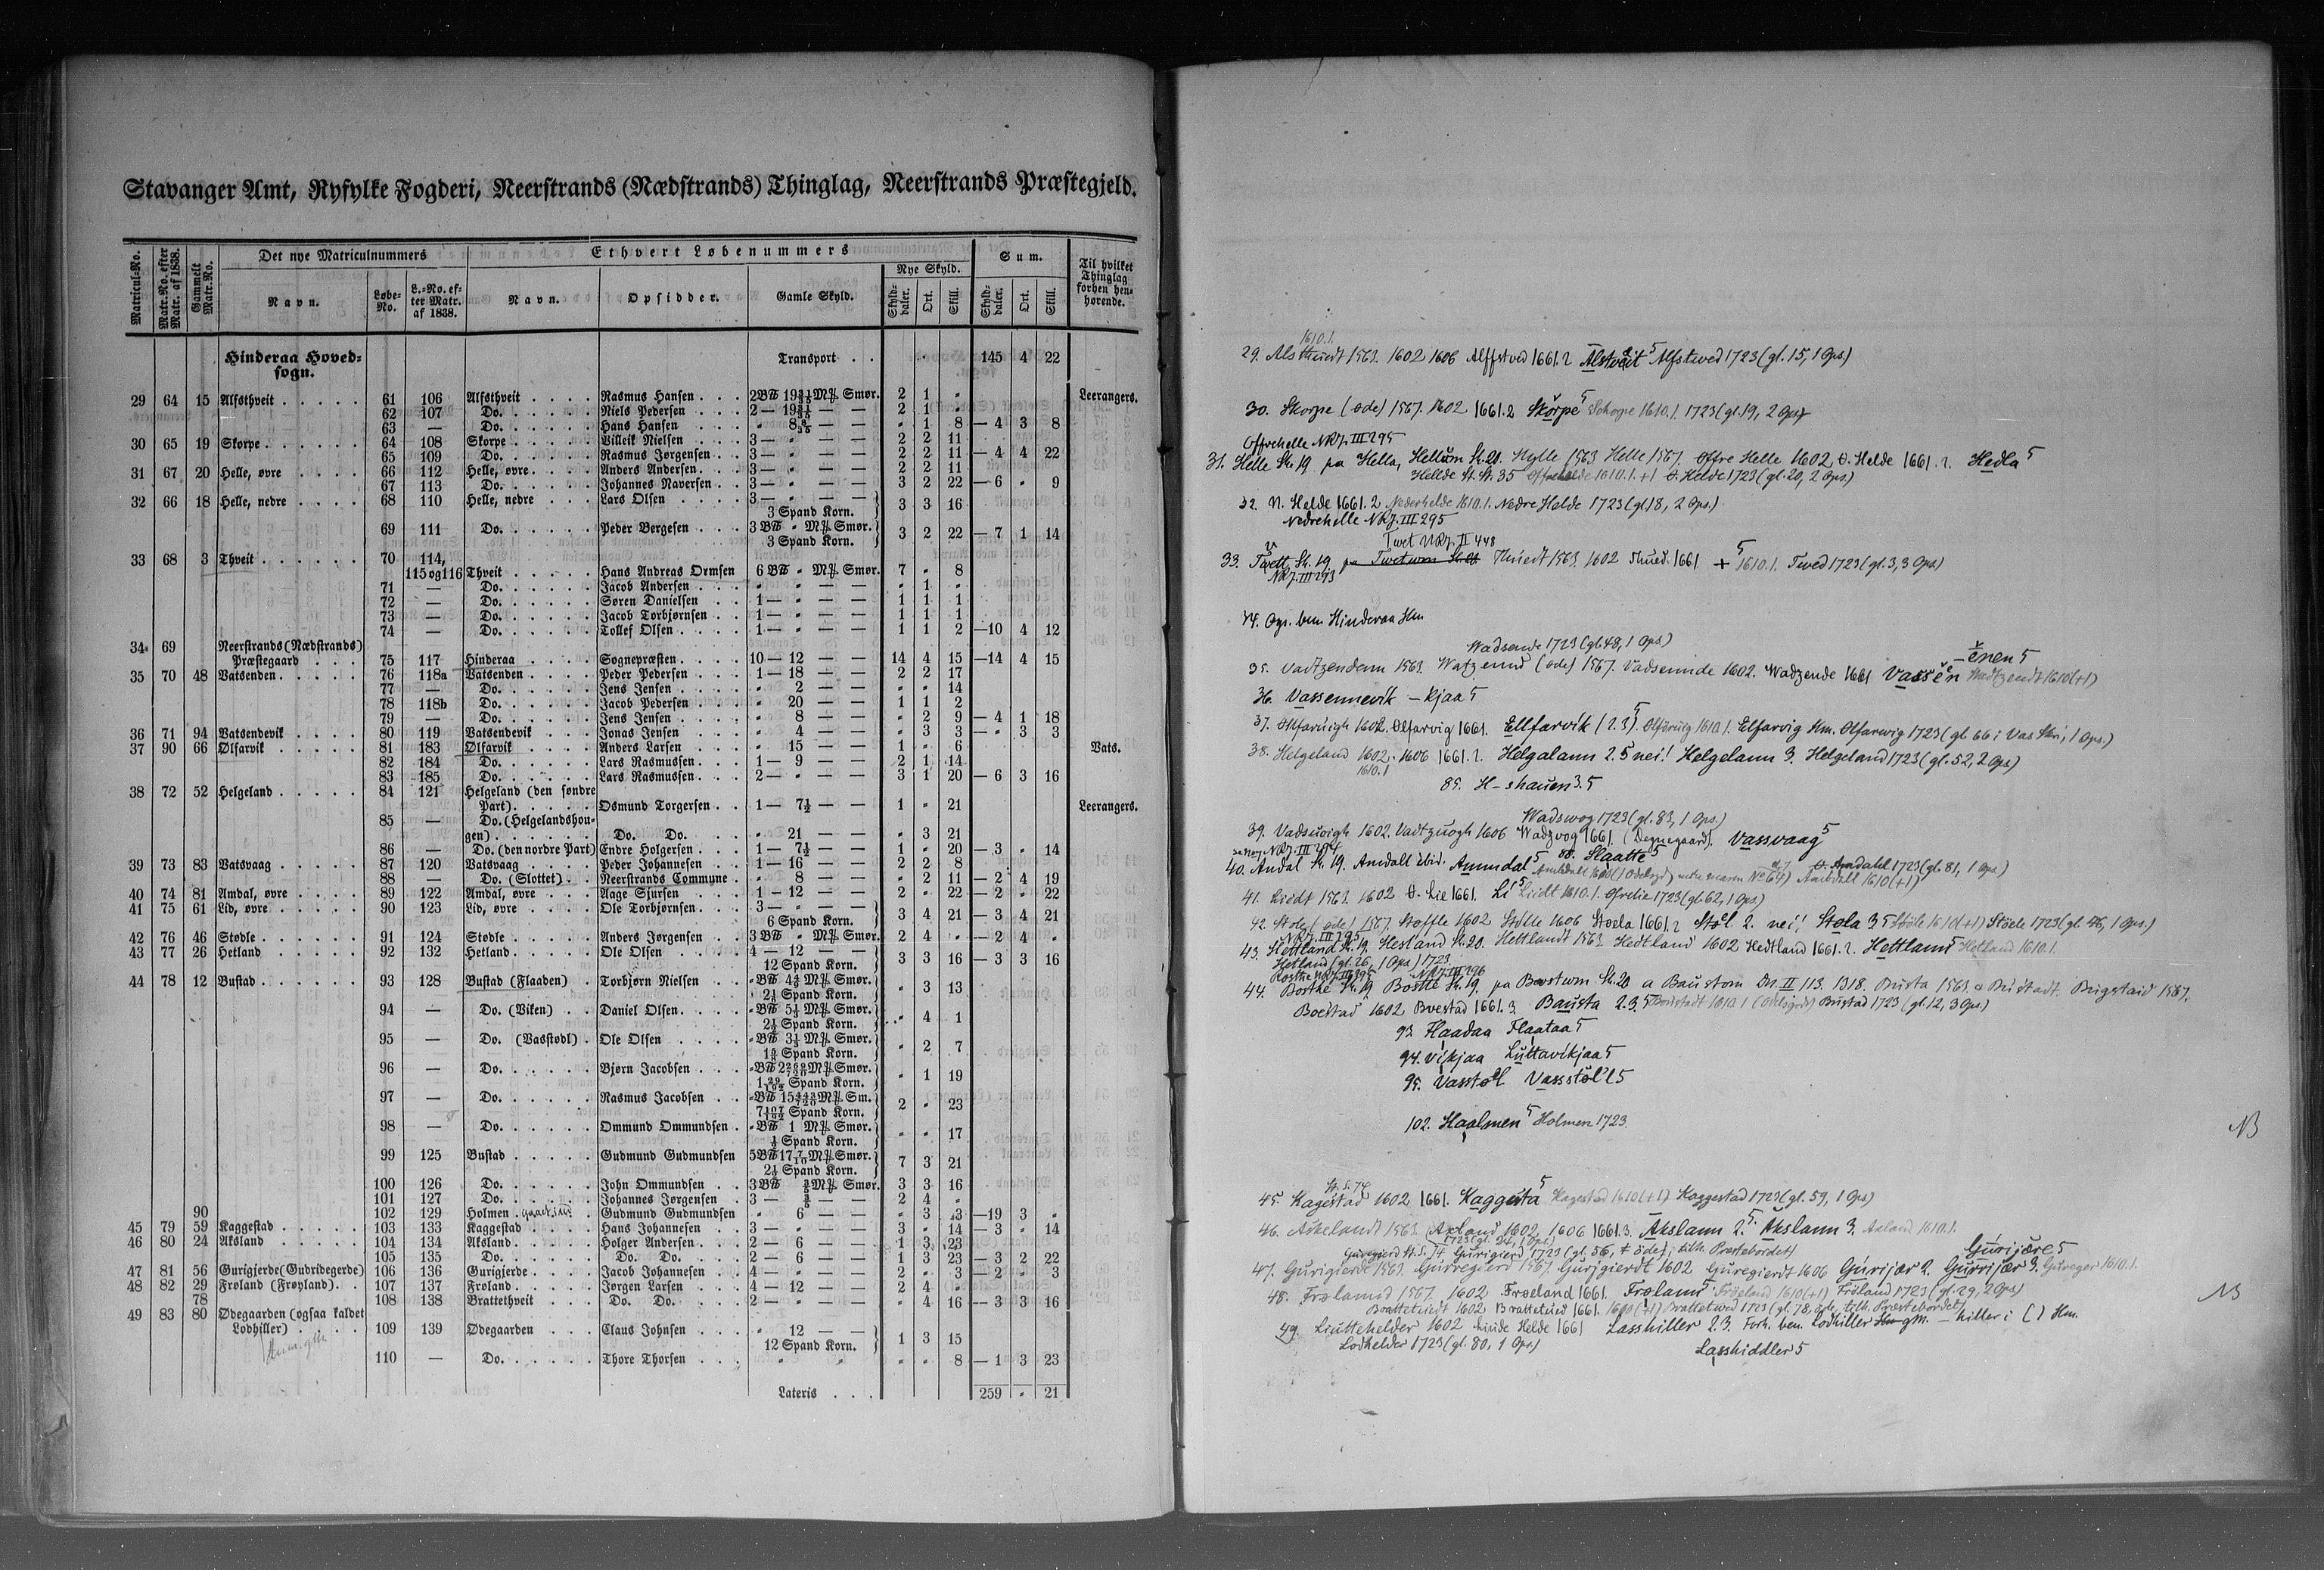 Stavanger Amt, Ryfylke Fogderi, Neerstrands (Nædstrands) Thinglag, Neerstrands Præstegjeld.
Matricul-No. Matr.-No. efter Matr. af 1838. Gammelt Matr.-No. Det nye Matriculnummers Ethvert Løbenummers Sum. Til hvilket Thinglag forhen henhørende.
Navn. Løbe-No. L.-No. efter Matr. af 1838. Navn. Opsidder. Gamle Skyld. Nye Skyld. Skylddaler. Ort. Skill. Skylddaler. Ort. Skill.
Hinderaa Hovedsogn. Transport . . 145 4 22
29 64 15 Alfsthveit 61 106 Alfsthveit Rasmus Hansen 2 1 " Leerangers.
62 107 Do. Niels Pedersen 2 1 "
63 — Do. Hans Hansen " 1 8 — 4 3 8
30 65 19 Skorpe 64 108 Skorpe Villeik Nielsen 3 — " — — 2 2 11
65 109 Do. Rasmus Jørgensen 3 — " — — 2 2 11 — 4 4 22
31 67 20 Helle, øvre 66 112 Helle, øvre Anders Andersen 3 — " — — 2 2 11
67 113 Do. Johannes Naversen 3 — " — — 3 2 22 — 6 " 9
32 66 18 Helle, nedre 68 110 Helle, nedre Lars Olsen 3 — " — — 3 3 16
3 Spand Korn.
69 111 Do. Peder Bergesen 3 " Smør. 3 2 22 — 7 1 14
3 Spand Korn.
33 68 3 Thveit 70 114,
115 og 116 Thveit Hans Andreas Ormsen 6 " Smør. 7 " 8
71 — Do. Jacob Andersen " — " — — " 1 "
72 — Do. Søren Danielsen 1 — " — — 1 1 1
73 — Do. Jacob Torbjørnsen 1 — " — — 1 1 1
74 — Do. Tollef Olsen 1 — " — — 1 1 2 — 10 4 12
34 69 Neerstrands (Nædstrands)
Præstegaard 75 117 Hinderaa Sognepræsten 10 — 12 — — 14 4 15 — 14 4 15
35 70 48 Vatsenden 76 118a Vatsenden Peder Pedersen 1 — 18 — — 2 2 17
77 — Do. Jens Jensen " 2 — — " " 14
78 118b Do. Jacob Pedersen " 20 — — 1 1 2
79 — Do. Jens Jensen " 8 — — " 2 9 — 4 1 18
36 71 94 Vatsendevik 80 119 Vatsendevik Jonas Jensen " 4 — — " 3 3 — " 3 3
37 90 66 Ølfarvik 81 183 Ølfarvik Anders Larsen " 15 — — 1 " 6 Vats.
82 184 Do. Lars Rasmussen 1 — 9 — — 2 1 14
83 185 Do. Lars Rasmussen 2 — " — — 3 1 20 — 6 3 16
38 72 52 Helgeland 84 121 Helgeland (den søndre
Part) Osmund Torgersen 1 — 7½ — — 1 " 21 Leerangers.
85 — Do. (Helgelandshougen) Do. Do. " 21 — — " 3 21
86 — Do. (den nordre Part) Endre Holgersen 1 — 7½ — — 1 " 20 — 3 " 14
39 73 83 Vatsvaag 87 120 Vatsvaag Peder Johannesen 1 — 16 — — 2 2 8
88 — Do. (Slottet) Neerstrands Commune " 8 — — " 2 11 — 2 4 19
40 74 81 Amdal, øvre 89 122 Amdal, øvre Aage Sjursen 1 — 12 — — 2 " 22 — 2 " 22
41 75 61 Lid, øvre 90 123 Lid, øvre Ole Torbjørnsen 3 — " — — 3 4 21 — 3 4 21
6 Spand Korn.
42 76 46 Stødle 91 124 Stødle Anders Jørgensen 3 " Smør. 2 4 " — 2 4 "
43 77 26 Hetland 92 132 Hetland Ole Olsen 4 — 12 — — 3 3 16 — 3 3 16
12 Spand Korn.
44 78 12 Bustad 93 128 Bustad (Flaaden) Torbjørn Nielsen Smør. " 3 13
Spand Korn.
94 — Do. (Viken) Daniel Olsen Smør. " 4 1
Spand Korn.
95 — Do. (Vasstødl) Ole Olsen Smør. " 2 7
Spand Korn.
96 — Do. Bjørn Jacobsen Smør. " 1 19
Spand Korn.
97 — Do. Rasmus Jacobsen Sm. 2 " 23
Spand Korn.
98 — Do. Ommund Ommundsen 1 Smør. " " 17
Spand Korn.
99 125 Bustad Gudmund Gudmundsen Smør. 7 3 21
Spand Korn.
100 126 Do. John Ommundsen 3 Smør. 3 3 16
101 127 Do. Johannes Jørgensen 3 — 2 4 "
90 102 129 Holmen Gudmund Gudmundsen " 6 — — " 3 3 — 19 3 "
45 79 59 Kaggestad 103 133 Kaggestad Hans Johannesen 3 — " — — 3 " 14 — 3 " 14
46 80 24 Aksland 104 134 Aksland Holger Andersen 2 — 6 — — 1 3 23
105 135 Do. Do. Do. 2 — 6 — — 1 3 23 — 3 2 22
47 81 56 Gurigjerde (Gudridegerde) 106 136 Gurigjerde Jacob Johannesen 4 — " — — 2 " 3 — 2 " 3
48 82 29 Frøland (Frøyland) 107 137 Frøland Jørgen Larsen 4 — 12 — — 2 4 "
78 108 138 Brattethveit Do. Do. 2 — " — — " 4 16 — 3 3 16
49 83 80 Ødegaarden (ogsaa kaldet
Lodhiller) 109 139 Ødegaarden Claus Johnsen " 12 — — 1 3 15
12 Spand Korn.
110 — Do. Thore Thorsen " " " " 8 — 1 3 23
Lateris . . . 259 " 21
1610.1.
29. Alsthuedt 1563. 1602 1606 Alffstved 1661.2 Alstveit 5 Alfstwed 1723 (gl. 15, 1 Ops.)
30. Skorpe (øde) 1567. 1602 1661.2 Skorpe 5 Schorpe 1610.1. 1723 (gl. 19, 2 Ops)
Offrehelle NRJ. III 295
31. Helle St. 19 pa Hella, Hellum St. 21. Hylle 1563 Helle 1567. Offre Helle 1602 O. Helde 1661.2. Hedla 5
Hellde St. St. 35 1610.1. +1 O. Helde 1723 (gl. 20, 2 Ops.)
32. N. Helde 1661.2 Nederhelde 1610.1. Nedre Helde 1723 (gl. 18, 2 Ops.)
Nedrehelle NRJ. III 295
Twet NRJ. II 448
33. Twett, St. 19 pa Twetum Thuedt 1563. 1602 Thued. 1661. + 5 1610.1. Twed 1723 (gl. 3, 3 Ops)
NRJ. III 293
74. Ops. ben Hinderaa Hm
Wadsende 1723 (gl. 48, 1 Ops.)
-enen 5
35. Vadtzendenn 1563. Watzennd (øde) 1567. Vadsennde 1602. Wadzende 1661 Vassen Wadtzendt 1610 (+1)
36. Vassennevik – kjaa 5
37. 1602. Olfarvig 1661. Ellfarvik (2.3) 5 1610.1. Elfarvig Hm. Olfarwig 1723 (gl. 66 i Vas Skr; 1 Ops.)
38. Helgeland 1602. 1606 1661.2. Helgalann 2. 5 nei! Helgelann 3. Helgeland 1723 (gl. 52, 2 Ops)
1610.1
85. H-shauen 3. 5
Wadswog 1723 (gl. 83, 1 Ops.)
39. Vadsuoigh 1602. Vadtzuogh 1606 Wadzvog 1661. (Degnegaard). Vassvaag 5
NRJ. III 294 88. Slaatte 5
40. Andal St. 19. Amdall ibid. Ammdal 5 O. Amdahl 1723 (gl. 81, 1 Ops.)
41. Liedt 1563. 1602 O. Lie 1661. Li 5 Liedt 1610.1. Ofrelie 1723 (gl. 62, 1 Ops)
42. Stole (øde) 1567. Stoffle 1602 Stølle 1606 Støela 1661.2 Støl 2. nei! Støla 3 5 Støele 1723 (gl. 46, 1 Ops.)
NRJ. III 295
43. Hettland St. 19 Hesland St. 20. Hettlandt 1563. Hedtland 1602 Hedtland 1661.2. Hettlann 5 Hetland 1610.1.
Hetland (gl. 26, 1 Ops.) 1723
44. Bosthe St. 19. Bostte St. 19, pa Bostwm St. 20 a Baustom Dn. II 113. 1318. Busta 1563. Bustadt. Bugstaid 1567.
Boestad 1602 Boestad 1661.3. Bausta 2.3. 5 Bustad 1723 (gl. 12, 3 Ops)
93 Flaadaa Flaataa 5
94. Vikjaa Luttavikjaa 5
95. Vasstøl Vasstøl 5
102. Haalmen 5 Holmen 1723.
NB
St. S. 74
45. Kagestad 1602 1661. Kaggesta 5 Kagestad 1610 (+1) Kaggestad 1723 (gl. 59, 1 Ops)
46. Askelandt 1563. Axland 1602, 1606 1661.3. Akslann 2. 5 Akslann 3. Axland 1610.1.
1723 (gl. 24, 1 Ops)
Guregierd St. S. 74 Gurigierd 1723 (gl. 56, øde; tilh. Præstebordet)
Gurijære 5
47. Gurigierdt 1563. Gurregierd 1567. Gurjgierdt 1602 Guregierdt 1606 Gurijær 2. Gurrijær 3. 1610.1.
48. Frølannd 1567. 1602 Frøeland 1661. Frølann 5 Frøeland 1610 (+1) Frøland 1723 (gl. 29, 2 Ops)
NB
Brattetuedt 1602 Brattetued 1661. 1610 (+1) Brattetwed 1723 (gl. 78, øde, tilh. Præstebordet)
49. Liuttehelder 1602 Liude Helde 1661 Lasshiller 2.3. Forh. ben. Lodhiller gm. – hiller i ( ) Hm.
Lodhelder 1723 (gl. 80, 1 Ops)
Lasshiddler 5